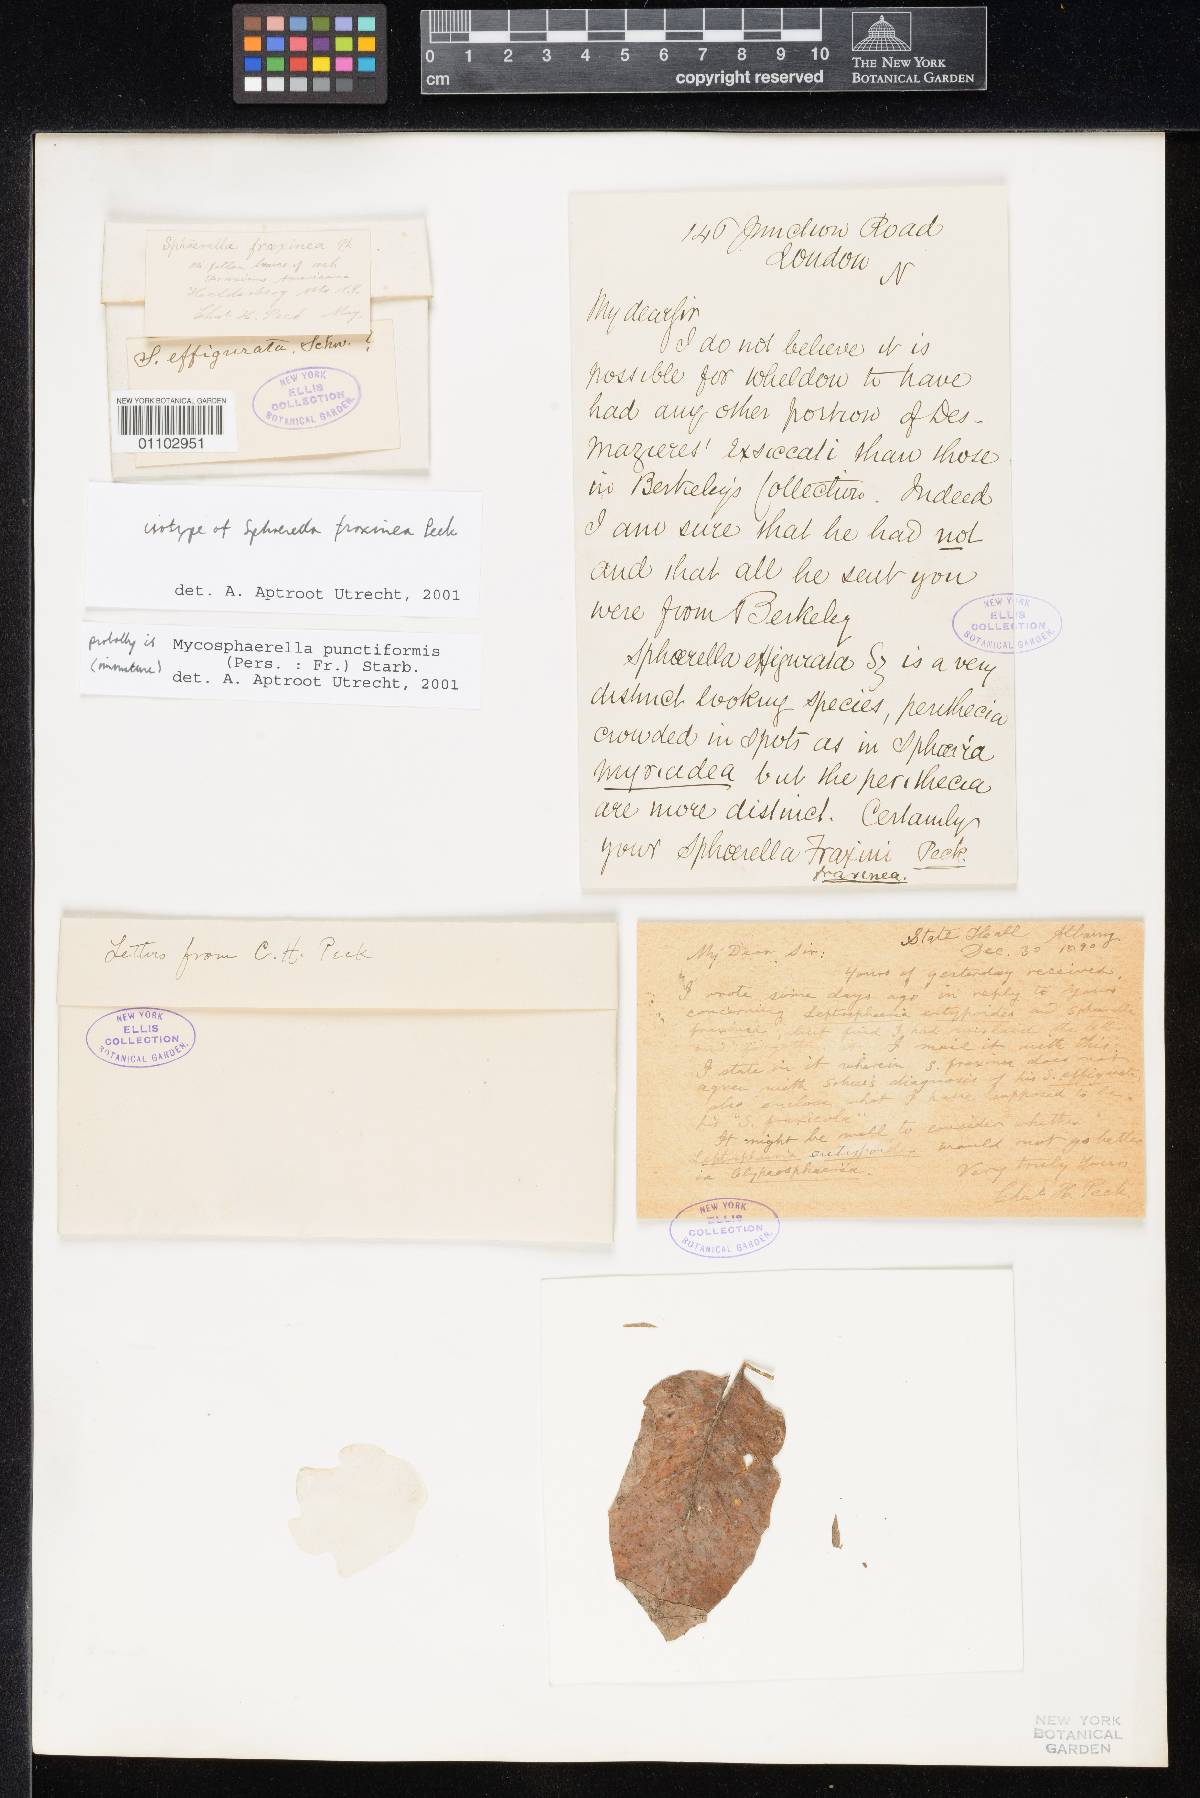 0 1 2 3 4 5 6 7 8 9 10
cm
copyright reserved
THE NEW YORK
BOTANICAL GARDEN
Sphaerella fraxinea Pk.
On fallen leaves of ash
Fraxinus Americana
Helderberg Mts. N.Y.
Chas H. Peck May
S. effigurata, Schw. ?
NEW YORK
ELLIS
COLLECTION
BOTANICAL GARDEN.
NEW YORK BOTANICAL GARDEN
01102951
isotype of Sphaerella fraxinea Peck
det. A. Aptroot Utrecht, 2001
probably is
(immature)
Mycosphaerella punctiformis
(Pers. : Fr.) Starb.
det. A. Aptroot Utrecht, 2001
146 Junction Road
London
N
My dear Sir
I do not believe it is
possible for Wheldon to have
had any other portion of Des-
mazieres' exsiccati than those
in Berkeley's Collection. Indeed
I am sure that he had not
and that all he sent you
were from Berkeley
NEW YORK
ELLIS
COLLECTION
BOTANICAL GARDEN.
Sphærella effigurata Sz is a very
distinct looking species, perithecia
crowded in spots as in Sphæria
myriadea but the perithecia
are more distinct. Certainly
your Sphærella Fraxini Peck
fraxinea.
Letters from C. H. Peck
NEW YORK
ELLIS
COLLECTION
BOTANICAL GARDEN.
State Hall Albany
Dec. 30 1890
My Dear Sir:
Yours of yesterday received.
I wrote some days ago in reply to yours
concerning Leptosphaeria eutypoides and Sphaerella
fraxinea but find I had
I mail it with this.
I state in it wherein S. fraxinea does not
agree with Schw's diagnosis of his S. effigurata,
also enclose what I have supposed to be
his "S. fraxicola"
It might be well to consider whether
Leptosphaeria eutypoides would not go better
in Clypeosphaeria.
Very truly yours
Chas H. Peck
NEW YORK
ELLIS
COLLECTION
BOTANICAL GARDEN.
NEW YORK
BOTANICAL
GARDEN